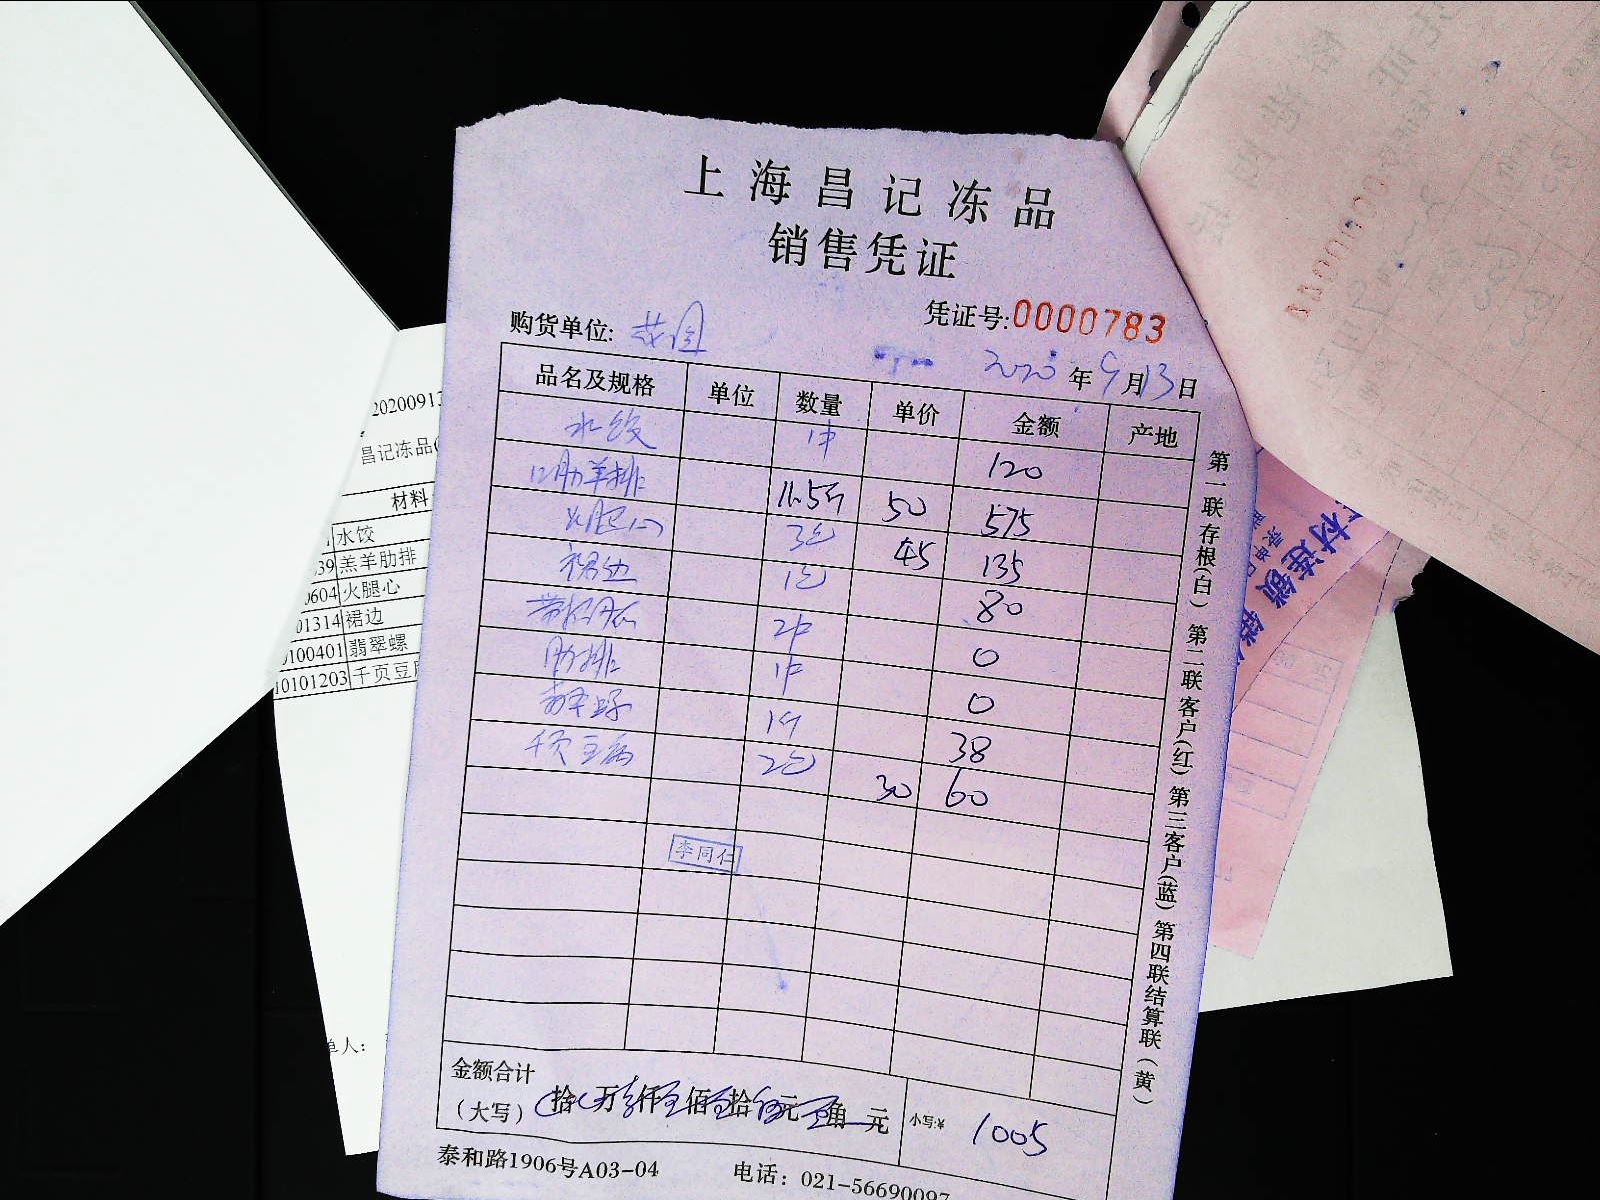 上海昌记冻品
销售凭证
凭证号:0000783
购货单位:
2020年9月13日
品名及规格 单位 数量 单价 金额 产地
水饺 1件 120
羊排 11.5斤 50 575
火腿心 3包 45 135
裙边 1包 80
2件 0
肋排 1件 0
翡翠螺 1斤 38
千页豆腐 2包 30 60
李同仁
金额合计
(大写) 拾 万 仟 佰 拾 元 角 元 小写:¥ 1005
泰和路1906号A03-04 电话: 021-56690097
第一联存根(白) 第二联客户(红) 第三客户(蓝) 第四联结算联(黄)
20200913
昌记冻品
材料
水饺
39 羔羊肋排
0604 火腿心
01314 裙边
100401 翡翠螺
10101203 千页豆
单人:
材连锁